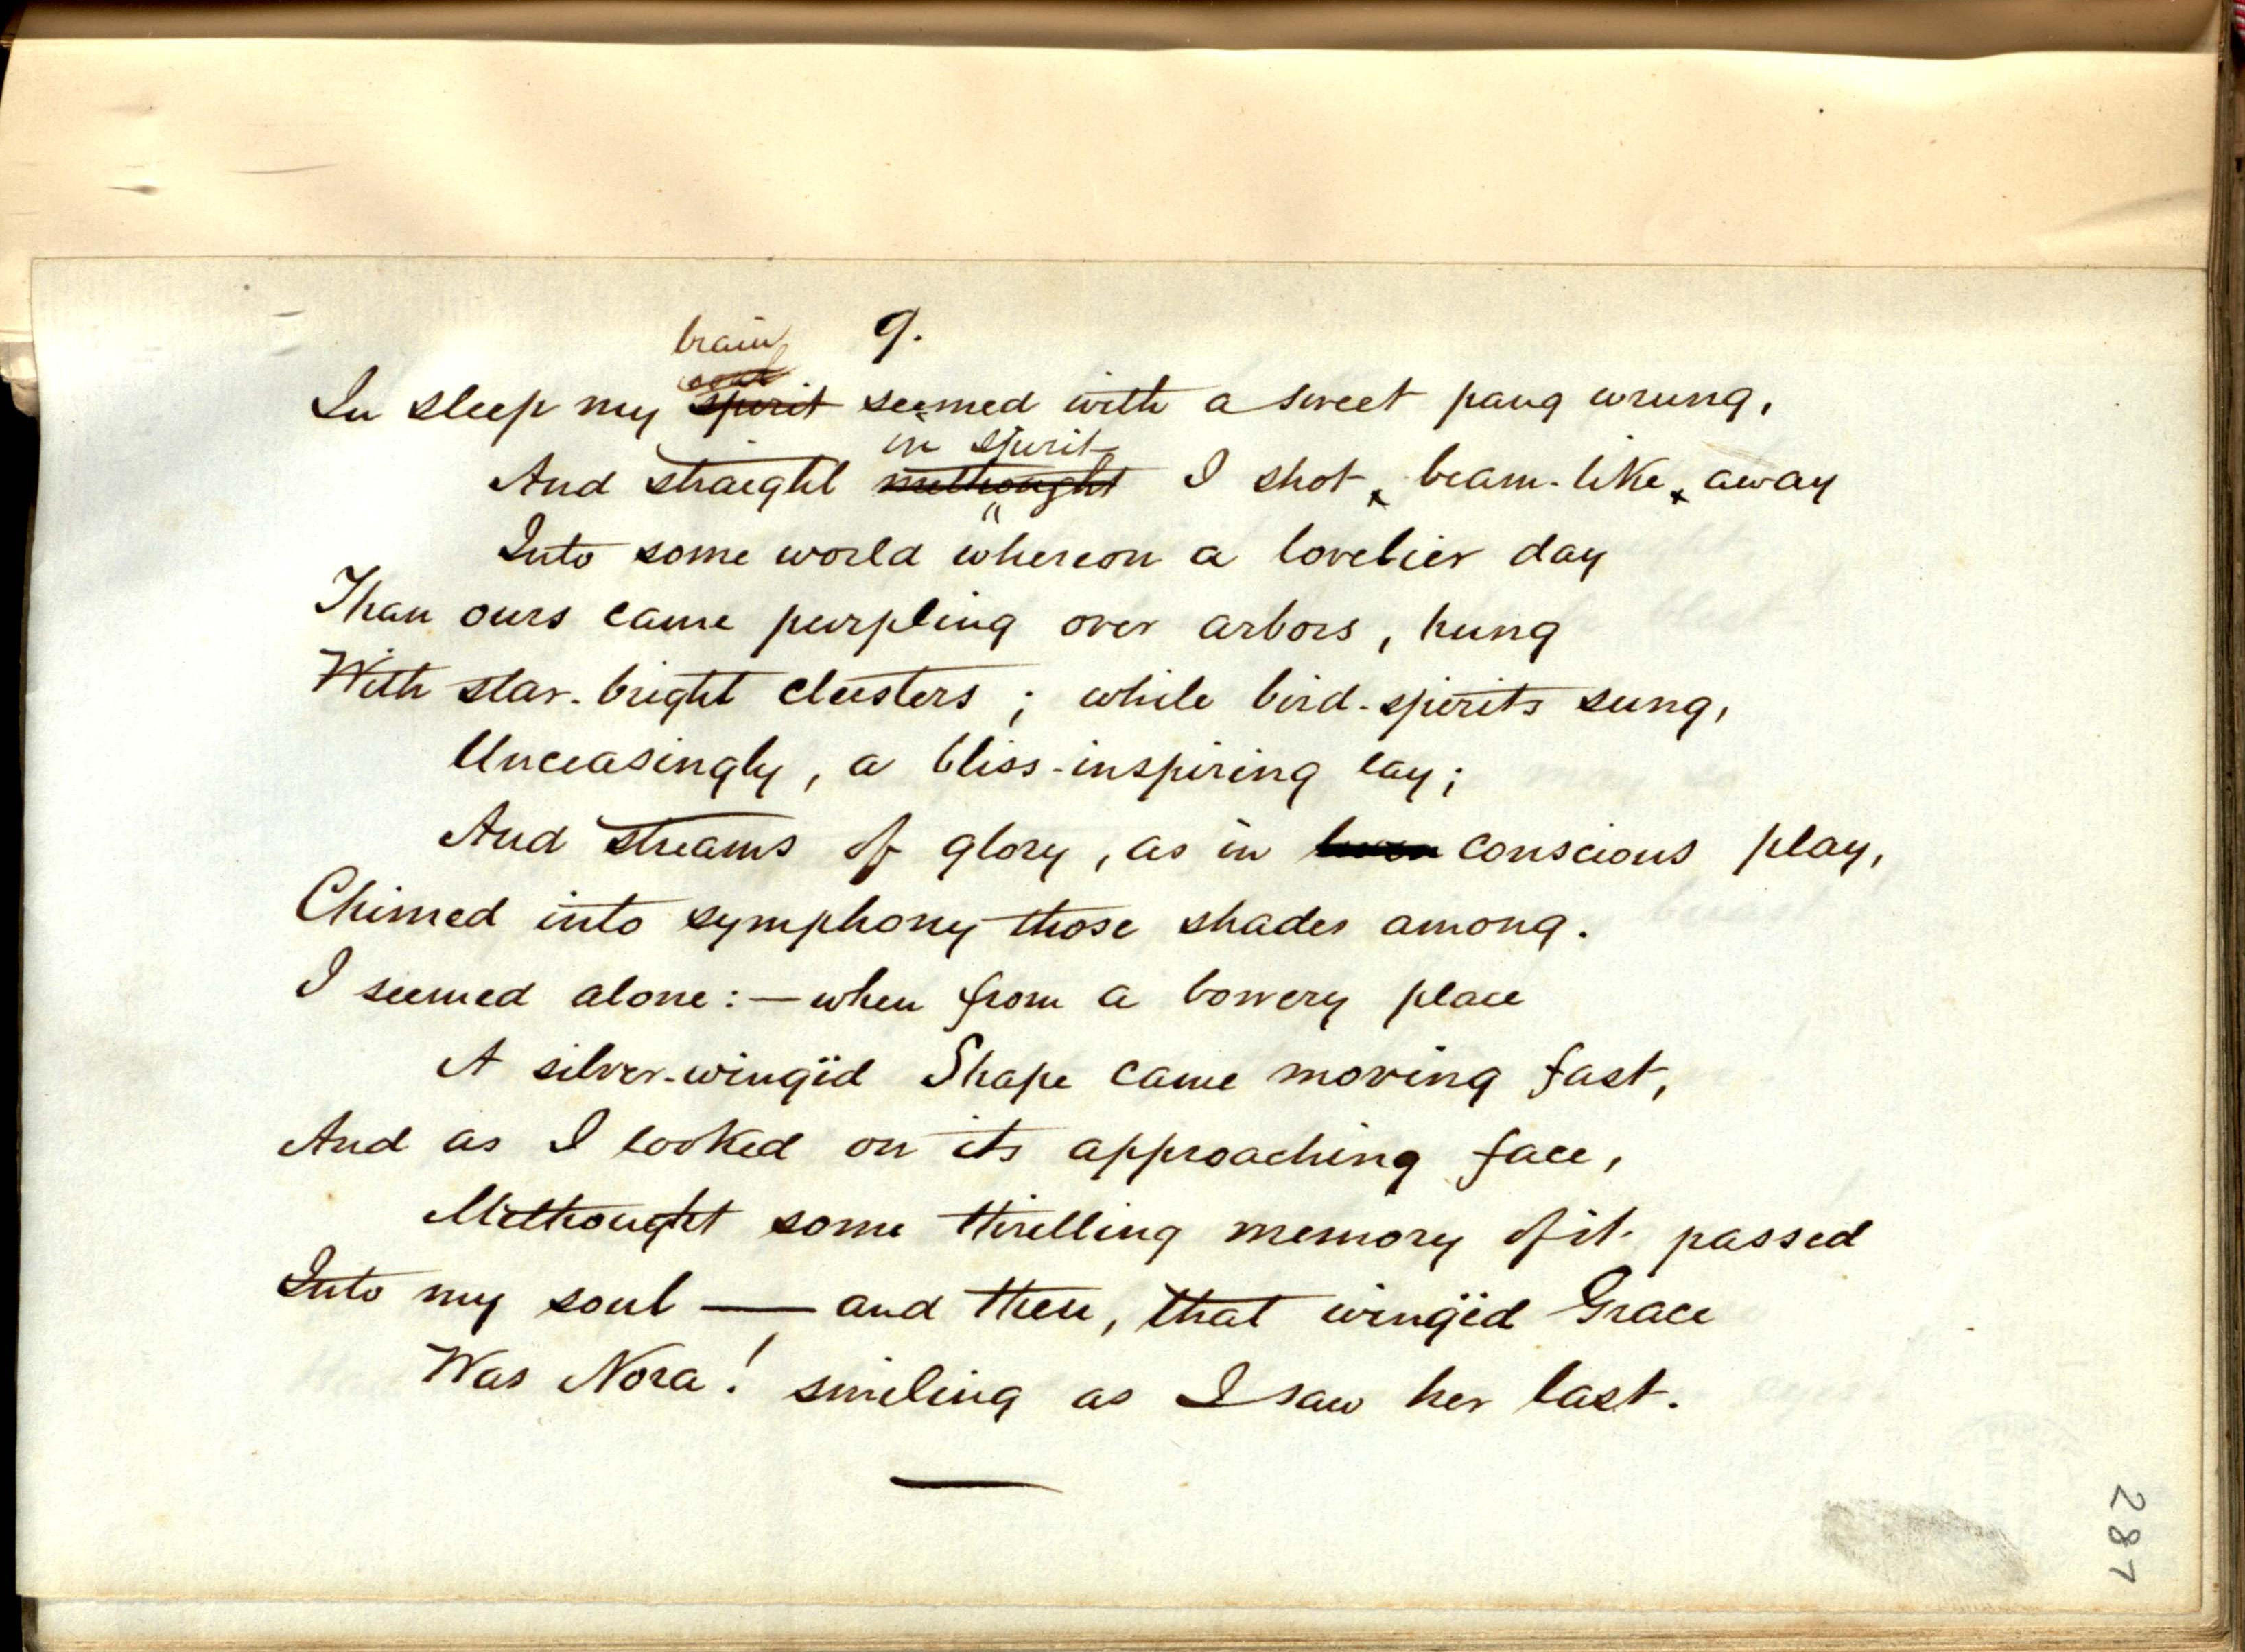 9.
brain
soul
In sleep my spirit seemed with a sweet pang wrung,
in spirit
And straight methought I shot, beam-like, away
Into some world whereon a lovelier day
Than ours came purpling over arbors, hung
With star-bright clusters; while bird-spirits sung,
Unceasingly, a bliss-inspiring lay;
And streams of glory, as in conscious play,
Chimed into symphony those shades among.
I seemed alone:—when from a bowery place
A silver-wingëd Shape came moving fast,
And as I looked on its approaching face,
Methought some thrilling memory of it passed
Into my soul — and then, that wingëd Grace
Was Nora! smiling as I saw her last.
287